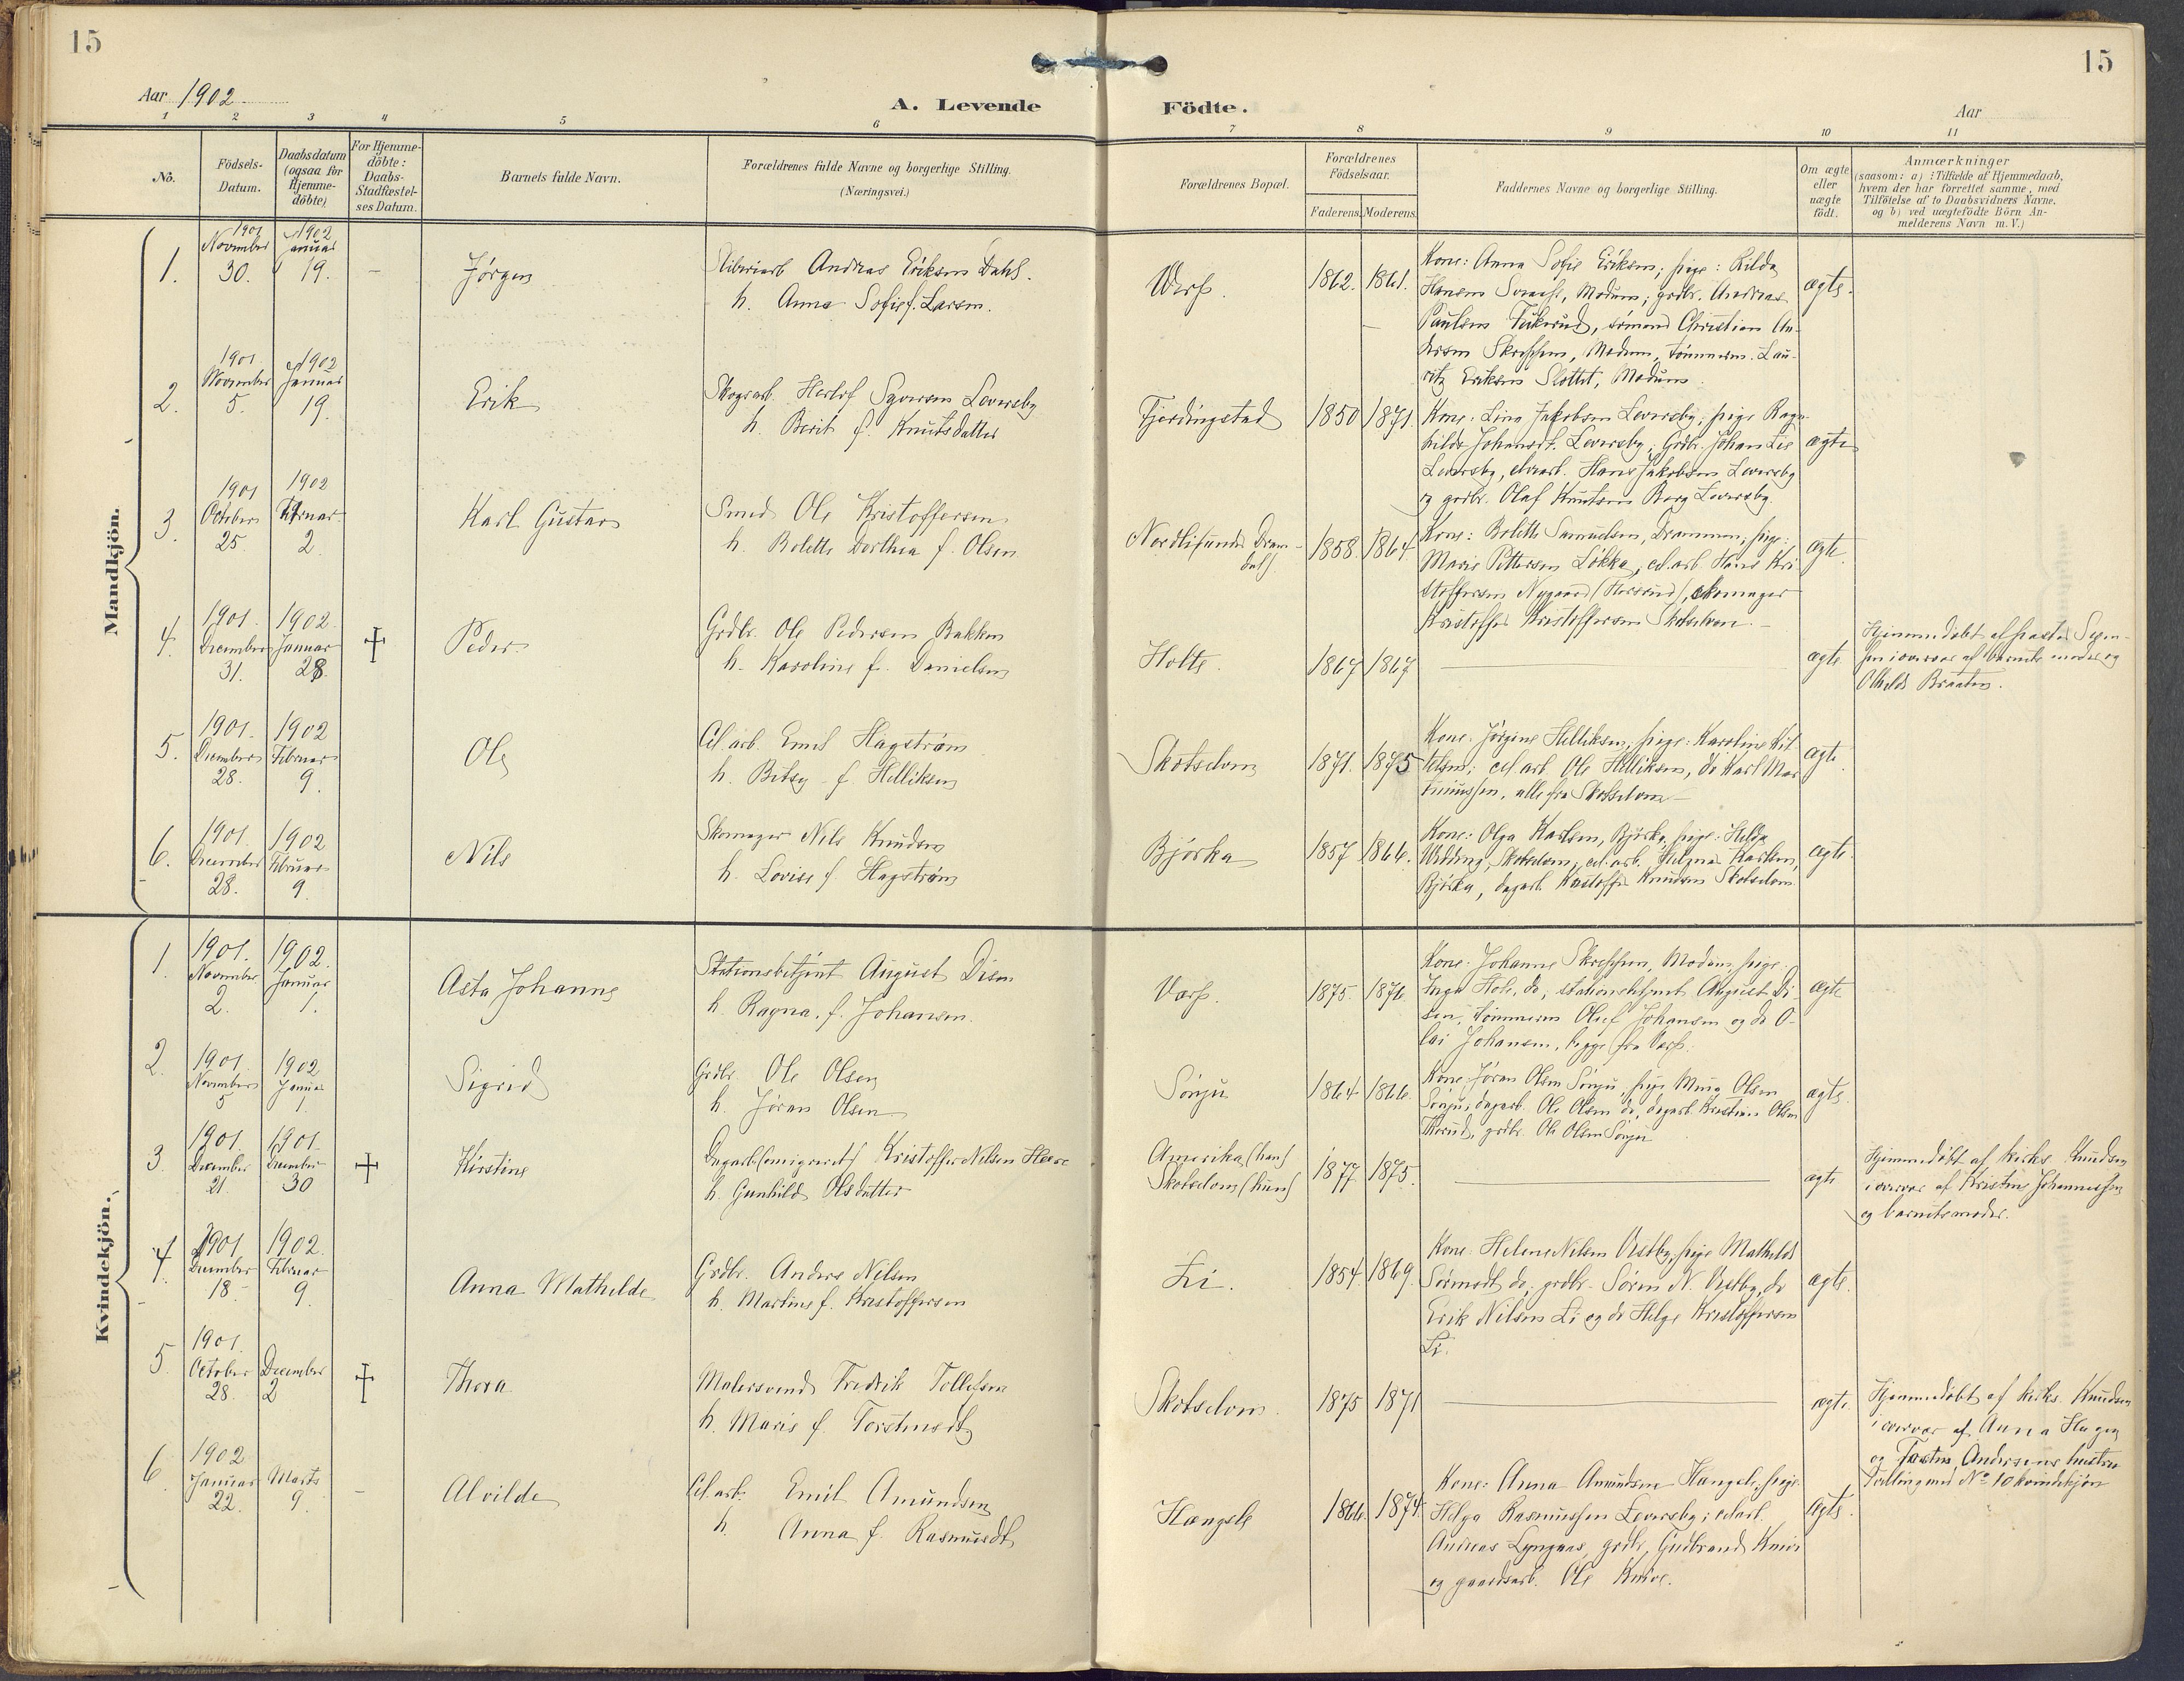 15
15
Aar 1902.
A. Levende Födte.
Aar
1 2 3 4 5 6 7 8 9 10 11
No.
Födsels-
Datum.
Daabsdatum
(ogsaa for
Hjemme-
döbte)
For Hjemme-
döbte:
Daabs-
Stadfæstel-
ses Datum.
Barnets fulde Navn.
Forældrenes fulde Navne og borgerlige Stilling.
(Næringsvei.)
Forældrenes Bopæl.
Forældrenes
Födselsaar.
Faderens. Moderens.
Faddernes Navne og borgerlige Stilling.
Om ægte
eller
uægte
födt.
Anmærkninger
(saasom: a) i Tilfælde af Hjemmedaab,
hvem der har forrettet samme, med
Tilföielse af to Daabsvidners Navne,
og b) ved uægtefödte Börn An-
melderens Navn m. V.)
Mandkjön.
1.
1901
November
30.
1902
Januar
19.
-
Jørgen
Andreas Eriksen Dahl.
h. Anna Sofie f. Larsen.
1862. 1861.
Kone: Anna Sofie Eriksen; pige: Hilda
Hansen Modum; grdbr. Andreas
Paulsen Christian An-
dersen Modum, Tømmerm. Lau-
ritz Eriksen Slottet, Modum.
ægte.
2.
1901
November
5.
1902
Januar
19.
Erik
Skogsarb. Herlof Syversen Loversby
h. Berit f. Knutsdatter
Fjerdingstad
1850 1871.
Kone: Lina Jakobsen Loversby; pige Ragn-
hilda Johansdt. Loversby; Grdbr. Johan Lie
Loversby, Hans Jakobsen Loversby
og grdbr. Olaf Knutsen Berg Loversby.
ægte
3.
1901
October
25
1902
Februar
2.
Karl Gustav
Smed Ole Kristoffersen
h. Bolette Dorthea f. Olsen
1858. 1864.
Kone: Bolette Samuelsen, Drammen; pige:
Marie Pettersen Løkka, cel.arb. Hans Kri-
stoffersen Nygaard skomager
Kristoffer Kristoffersen Skotselven.-
ægte.
4.
1901.
December
31.
1902
Januar
28.
Peder
Grdbr. Ole Pedersen Bakken
h. Karoline f. Danielsen
Holte.
1867 1867
ægte
Hjemmedøbt af
i overvær af barnets moder og
Braaten.
5.
1901.
December
28.
1902
Februar
9.
Ole
Cel.arb. Emil Hagstrøm
h. Betsy f. Helliksen
Skotselven
1871. 1875
Kone: Jørgine Helliksen, pige: Karoline Kit-
telsen; cel.arb. Ole Helliksen, do Karl Mar-
tinussen, alle fra Skotselven-
ægte
6.
1901
December
28.
1902
Februar
9.
Nils
Skomager Nils Knudsen
h. Lovise f. Hagstrøm
Bjørka
1857 1866.
Kone: Olga Karlsen, Bjørka, pige: Hilda
Skotselven, cel.arb. Karlsen,
Bjørka, dagarb. Kristoffer Knudsen Skotselven.
ægte.
Kvindekjön.
1.
1901.
November
2.
1902.
Januar
1.
Asta Johanne
Stationsbetjent August Disen
h. Ragna. f. Johansen.
1875. 1876.
Kone: Johanne Modum, pige.
Inga Hole, do, stationsbetjent August Di-
sen, tømmerm. Oluf Johansen og do O-
lai Johansen, begge fra
ægte
2.
1901.
November
5
1902
Januar
1.
Sigrid
Grdbr. Ole Olsen
h. Jøran Olsen
1864 1866.
Kone Jøran Olsen pige Olsen
dagarb. Ole Olsen do, dagarb. Olsen
grdbr. Ole Olsen
ægte.
3.
1901.
December
21.
1901.
December
30
Kirstine
Dagarb. (emigreret) Kristoffer Nilsen
h. Gunhild Olsdatter
Amerika (han)
Skotselven (hun)
1877 1875.
ægte
Hjemmedøbt af kirks. Knudsen
i overvær af Kristine Johannessen
og barnets moder.
4.
1901
December
18.
1902.
Februar
9.
Anna Mathilde
Grdbr. Anders Nilsen
h. Martine f. Kristoffersen
Li.
1854. 1869.
Kone: Helene Nilsen Vestby, pige Mathilde
do; grdbr. Søren N. Vestby, do
Erik Nilsen Li og do Helge Kristoffersen
Li.
ægte.
5
1901.
October
28.
December
2
Thora
Malersvend Fredrik Tollefsen
h. Marie f. Torstensdt.
Skotselven.
1875 1871
ægte.
Hjemmedøbt af kirks. Knudsen
i overvær af Anna Hagen
og Andersens hustru
Tvilling med No 10 kvindekjøn
6
1902
Januar
22.
Marts
9.
-
Alvilde
Cel.arb. Emil Amundsen
h. Anna f. Rasmusdt.
Hængsle
1866. 1874.
Kone: Anna Amundsen Hængsle; pige.
Helga Rasmussen Loversby; cel.arb.
Andreas Lyngaas, grdbr. Gudbrand Knive
og gaardsarb. Ole Knive.
ægte.